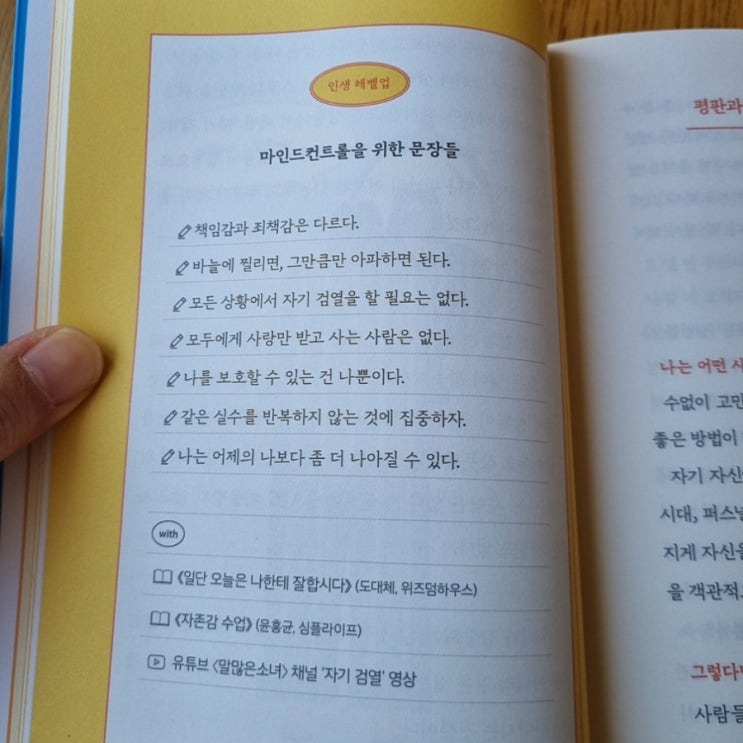 인생 레벨업
마인드컨트롤을 위한 문장들
책임감과 죄책감은 다르다.
바늘에 찔리면, 그만큼만 아파하면 된다.
모든 상황에서 자기 검열을 할 필요는 없다.
모두에게 사랑만 받고 사는 사람은 없다.
나를 보호할 수 있는 건 나뿐이다.
같은 실수를 반복하지 않는 것에 집중하자.
나는 어제의 나보다 좀 더 나아질 수 있다.
with
《일단 오늘은 나한테 잘합시다》 (도대체, 위즈덤하우스)
《자존감 수업》 (윤홍균, 심플라이프)
유튜브 〈말많은소녀〉 채널 '자기 검열' 영상
평판과
나는 어떤
수없이 고민
좋은 방법이
자기 자신
시대, 퍼스널
지게 자신을
을 객관적
그렇다면
사람들